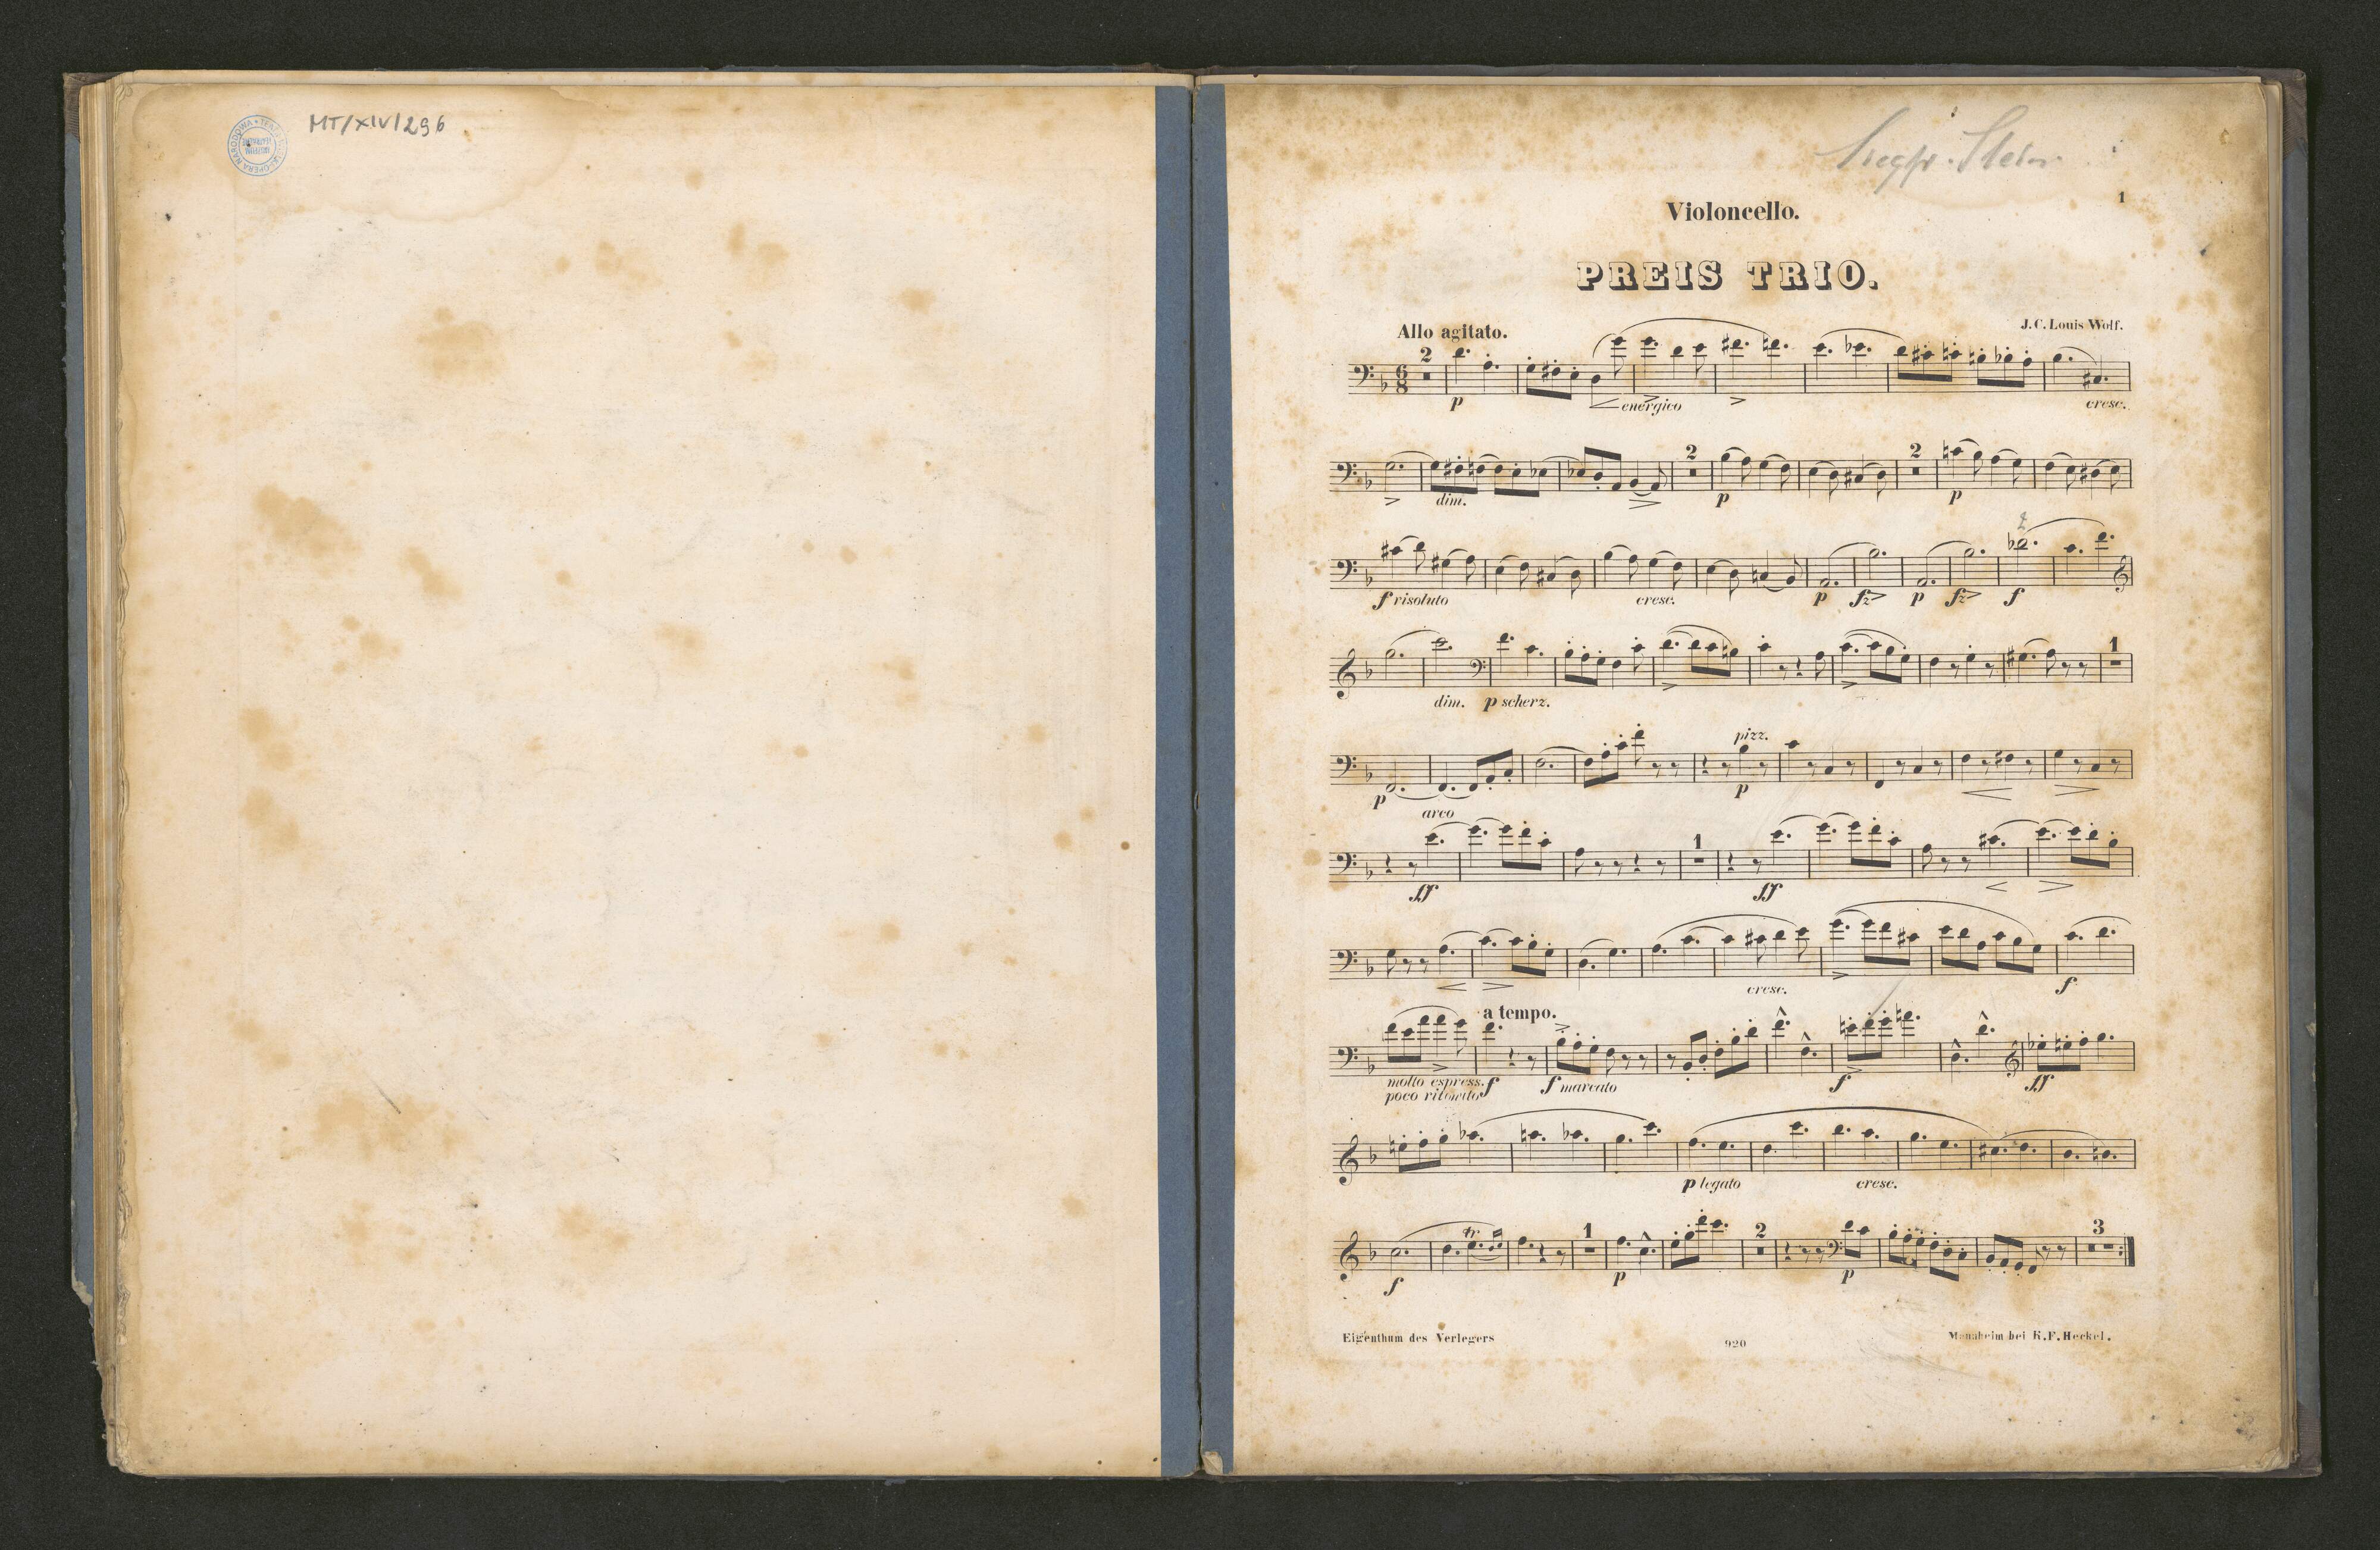 MT/XIV/296
Violoncello.
1
PREIS TRIO.
Allo agitato.
J.C. Louis Wolf.
2
p
energico
cresc.
dim.
2
p
2
p
f risoluto
cresc.
p fz p fz f
dim. p scherz.
1
pizz.
p
p
arco
1
ff
ff
cresc.
f
a tempo.
molto espress. f
f marcato
f
ff
poco ritenuto
p legato
cresc.
tr
1
2
3
f
p
p
Eigenthum des Verlegers
920
Mannheim bei K.F. Heckel.